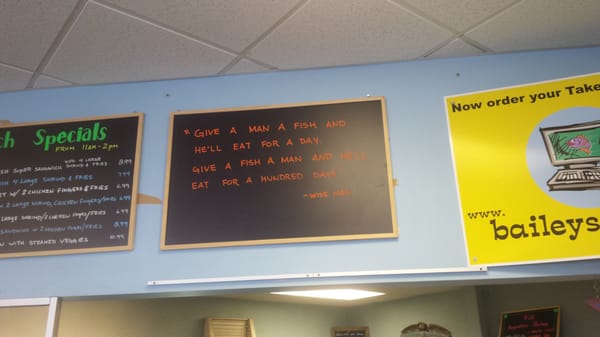 ch Specials
FROM 11AM-2PM
WITH 4 LARGE
SHRIMP & FRIES
SH SUPER SANDWICH 8.99
4 LARGE SHRIMP & FRIES 7.99
W/ 2 CHICKEN FINGERS & FRIES 6.99
W/ 2 LARGE SHRIMP, CHICKEN FINGERS/FRIES
LARGE SHRIMP/2 CHICKEN FINGERS/FRIES 6.99
SANDWICH W/ 2 CHICKEN FINGERS/FRIES 8.99
W WITH STEAMED VEGGIES 10.99
"GIVE A MAN A FISH AND
HE'LL EAT FOR A DAY.
GIVE A FISH A MAN AND HE'LL
EAT FOR A HUNDRED DAYS
- WISE MAN
Now order your Take
www.
baileys